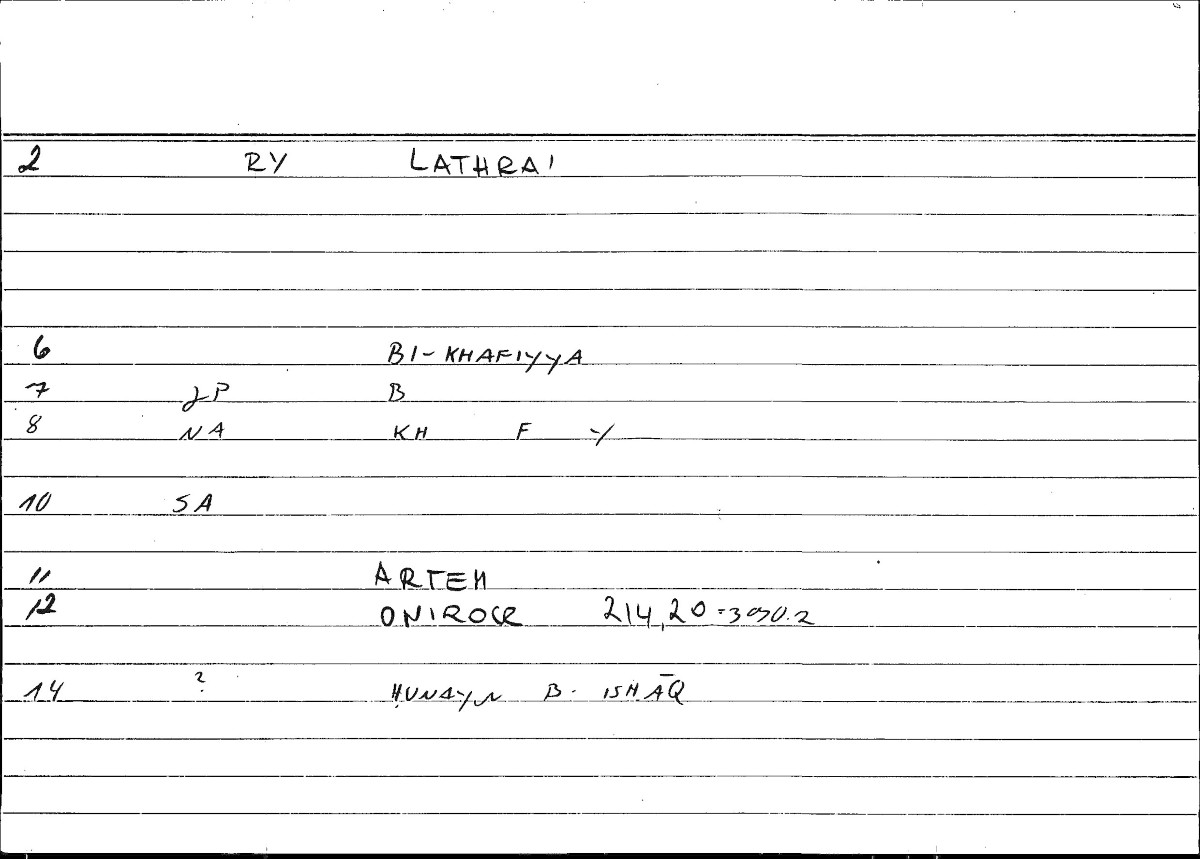 2 RY LATHRAI
6 BI-KHAFIYYA
7 JP B
8 NA KH F Y
10 SA
11 ARTEM
12 ONIROCR 214,20 =
14 ? ḤUNAYN B. ISḤĀQ